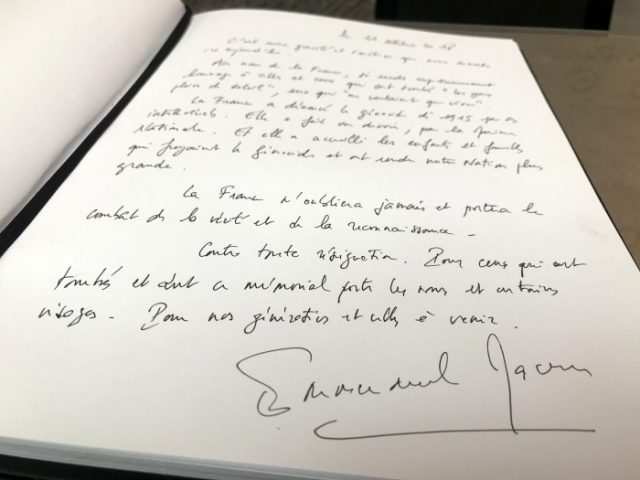 le 11 octobre 2018
C'est avec gravité et émotion que nous sommes
ici aujourd'hui.
Au nom de la France, je rends
hommage à celles et ceux qui sont tombés "les yeux
plein de soleil", ceux qui "ne voulaient que vivre".
La France a dénoncé le génocide de 1915 par ses
intellectuels. Elle a fait son devoir, par la Marine
Nationale. Et elle a accueilli les enfants et familles
qui fuyaient le Génocide et ont rendu notre Nation plus
grande.
La France n'oubliera jamais et portera le
combat de la vérité et de la reconnaissance.
Contre toute résignation. Pour ceux qui sont
tombés et dont ce mémorial porte les noms et certains
visages. Pour nos générations et celles à venir.
Emmanuel Macron